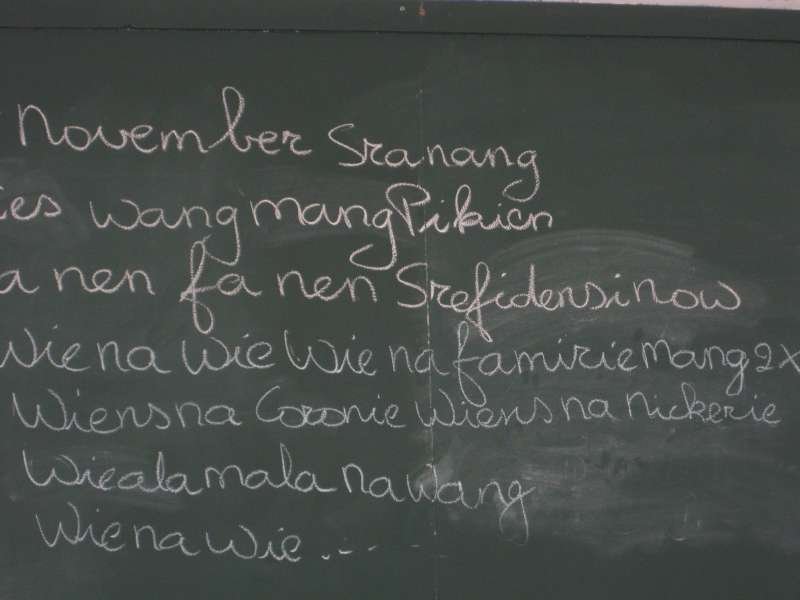 november Sranang
ies wang mang Pikien
a nen fa nen Srefidensi now
Wie na Wie Wie na famirie mang 2x
Wiensna Coronie Wiens na nickerie
Wie ala mala na wang
Wie na wie .. - - -